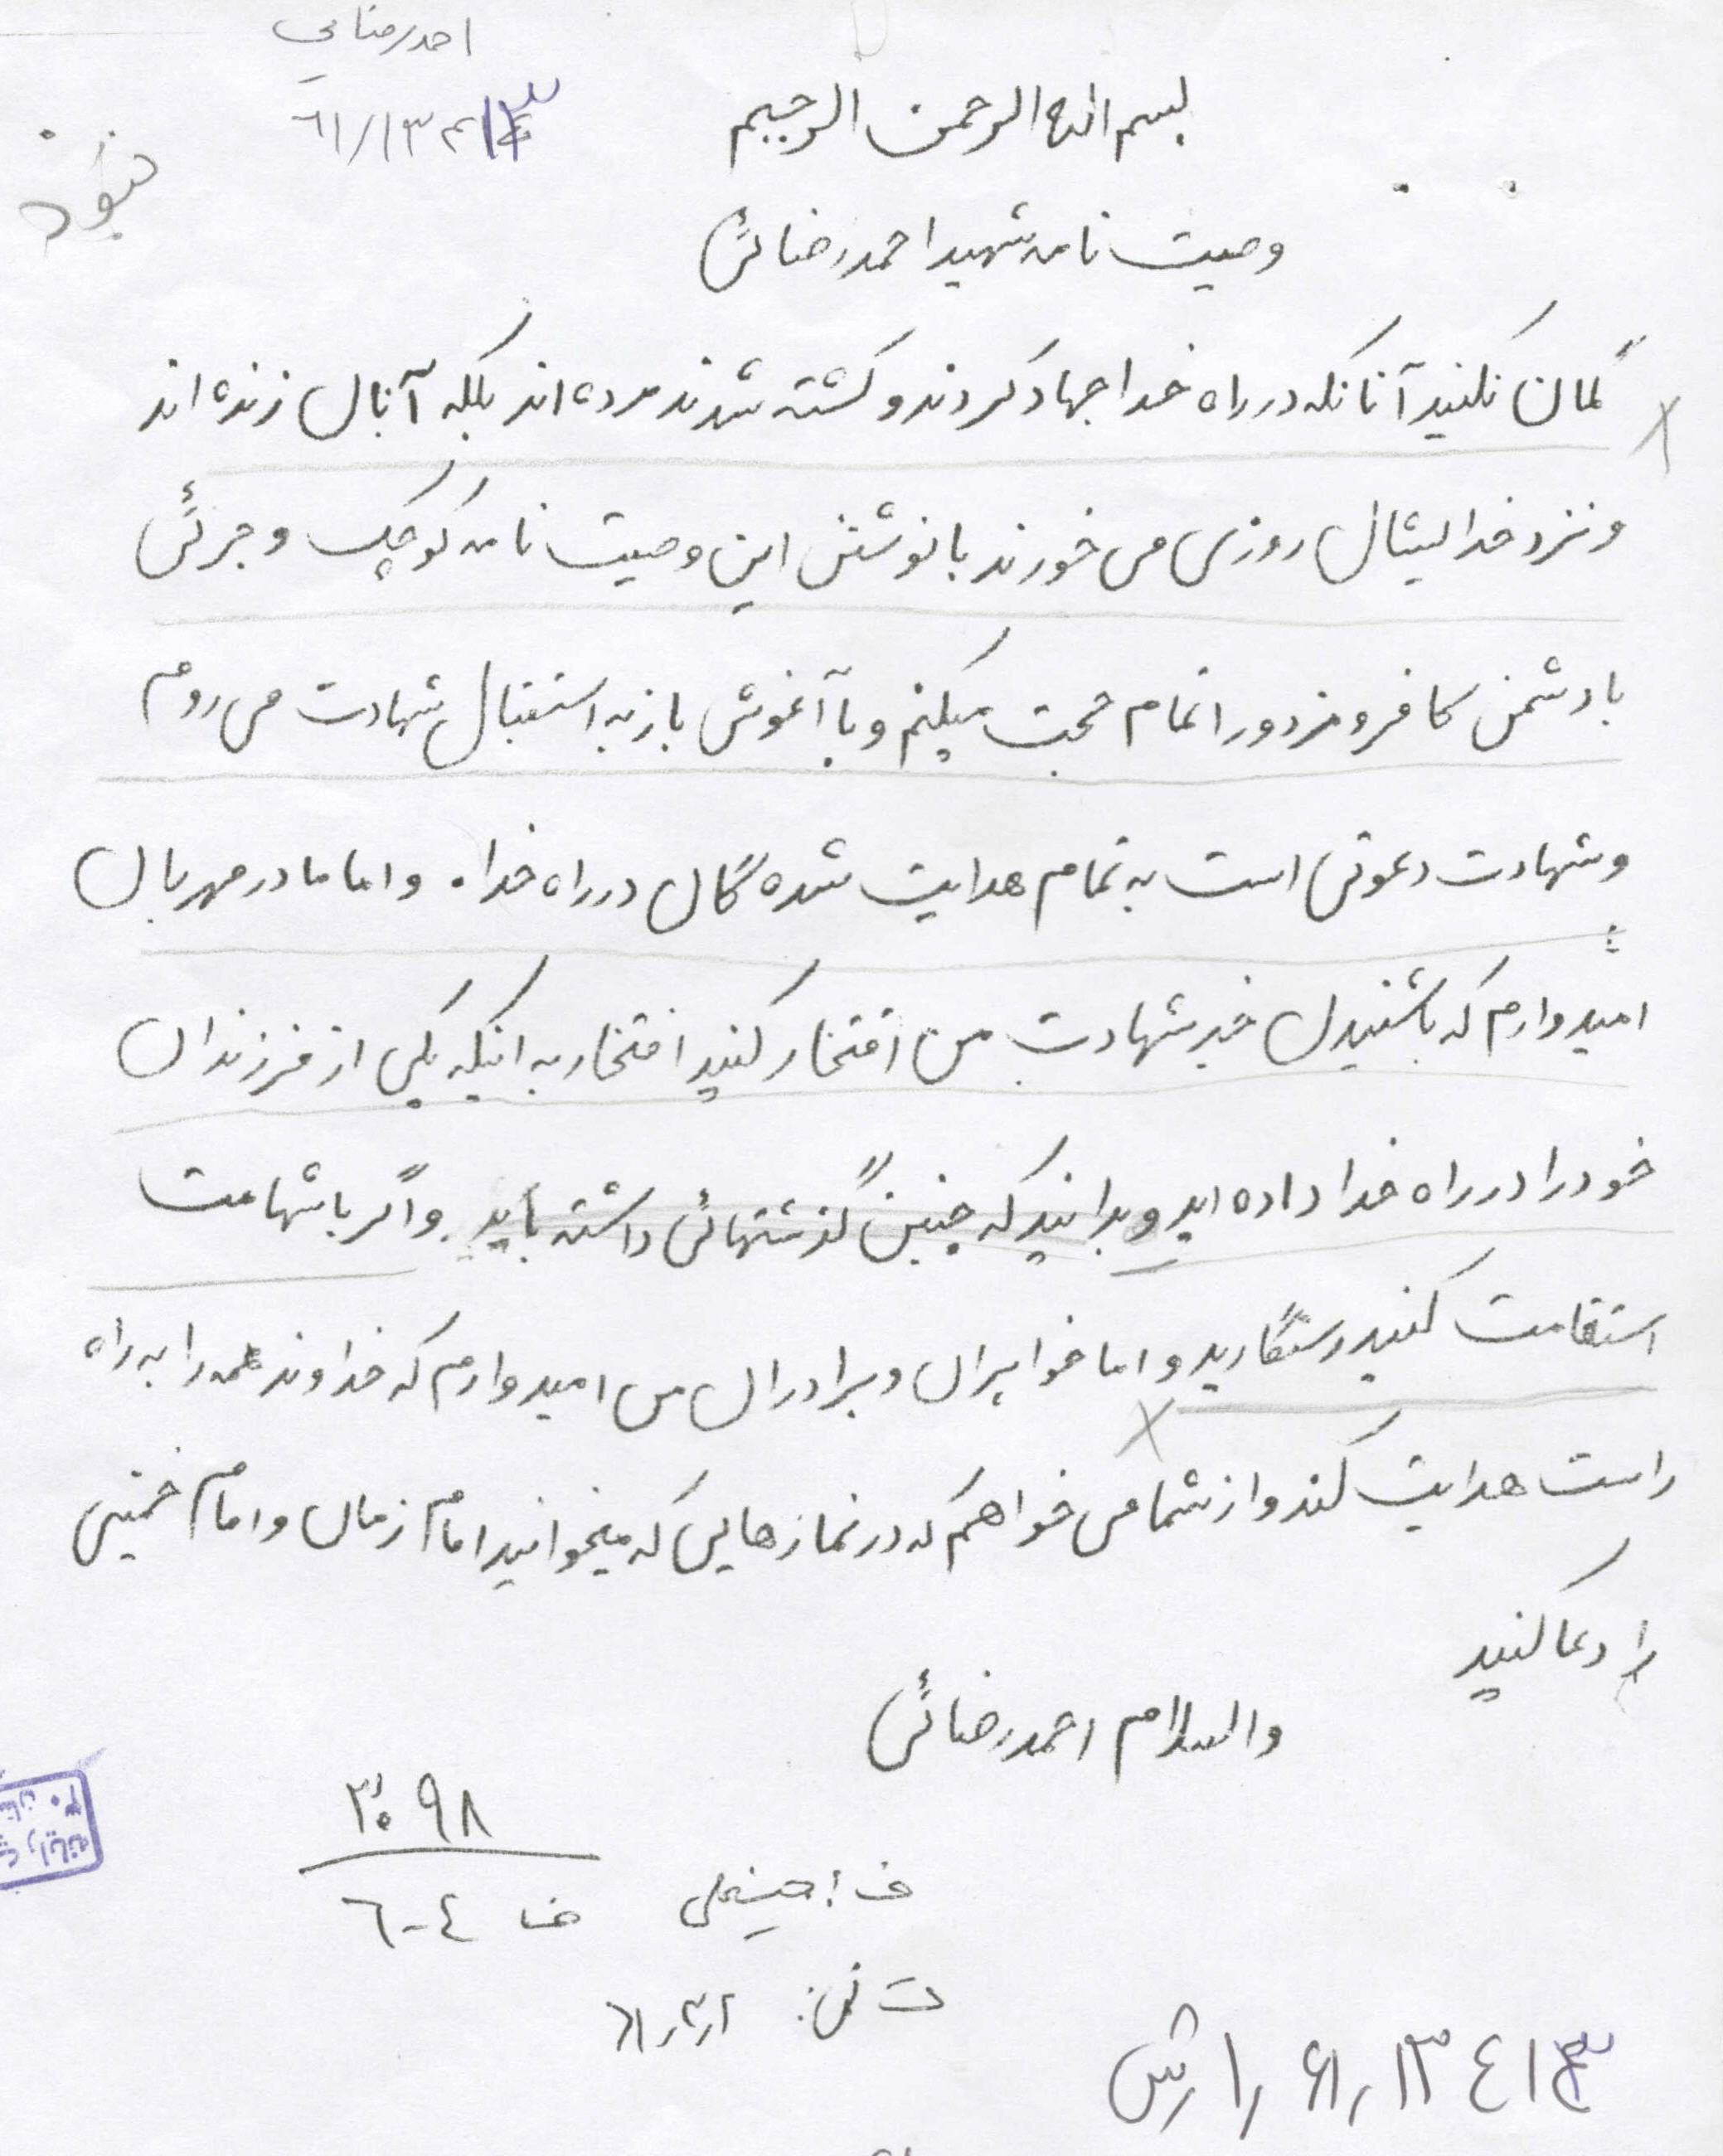 احمد رضایی
۶۱/۱۳۴۱۳
بسم الله الرحمن الرحیم
نبود
وصیت نامه شهید احمد رضائی
گمان نکنید آنانکه در راه خدا جهاد کردند و کشته شدند مرده اند بلکه آنان زنده اند
و نزد خدایشان روزی می خورند با نوشتن این وصیت نامه کوچک و جرئی
با دشمن کافر و مزدور اتمام حجت میکنم و با آغوش باز به استقبال شهادت می روم
و شهادت دعوتی است به تمام هدایت شده گان در راه خدا. و اما مادر مهربان
امیدوارم که باشنیدن خبر شهادت من افتخار کنید افتخار به اینکه یکی از فرزندان
خود را در راه خدا داده اید و بدانید که چنین گذشتهائی داشته باید. و اگر با شهامت
استقامت کنید رستگارید و اما خواهران و برادران من امیدوارم که خداوند همه را به راه
راست هدایت کند و از شما می خواهم که در نمازهایی که میخوانید امام زمان و امام خمینی
را دعا کنید
والسلام احمد رضائی
۳۰۹۸
ف ۴-۶
۶۱٫۱۳۴۱۳ ٫۱ رش